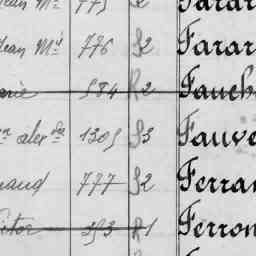 775 S2 Farar
Jean Mie 776 S2 Farar
arie 584 R2 Fauch
on alexdre 1305 S3 Fauve
naud 777 S2 Ferran
ictor 393 R1 Ferron